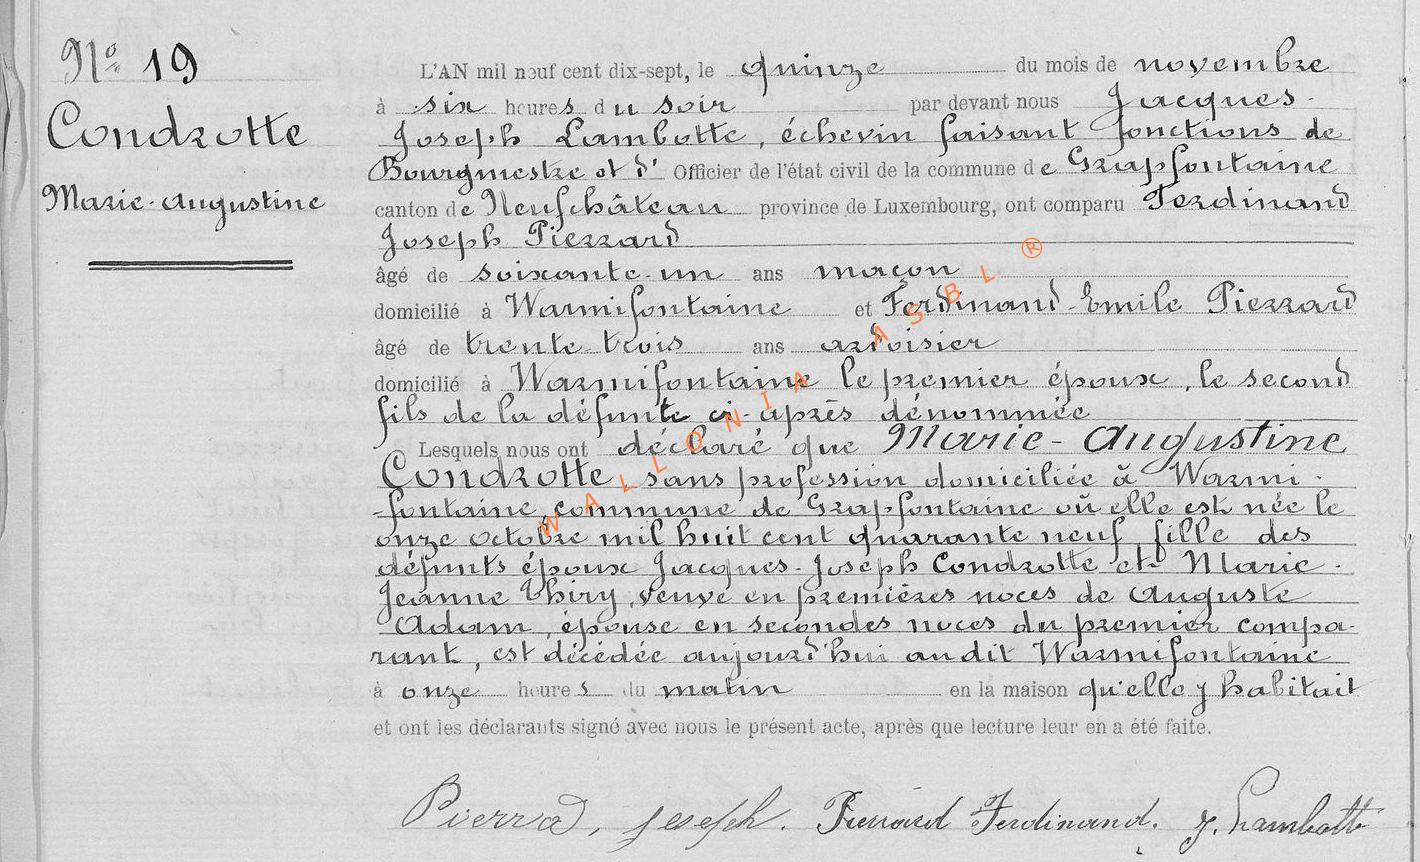 No 19
Condrotte
Marie-Augustine
L'AN mil neuf cent dix-sept, le quinze du mois de novembre
à six heures du soir par devant nous Jacques-
Joseph Lambotte, échevin faisant fonctions de
Bourgmestre et d' Officier de l'état civil de la commune de Grapfontaine
canton de Neufchâteau province de Luxembourg, ont comparu Ferdinand
Joseph Pierrard
âgé de soixante-un ans maçon
domicilié à Warmifontaine et Ferdinand-Emile Pierrard
âgé de trente-trois ans ardoisier
domicilié à Warmifontaine le premier époux, le second
fils de la défunte ci-après dénommée
Lesquels nous ont déclaré que Marie-Augustine
Condrotte, sans profession domiciliée à Warmi-
-fontaine, commune de Grapfontaine où elle est née le
onze octobre mil huit cent quarante neuf fille des
défunts époux Jacques-Joseph Condrotte et Marie-
Jeanne Thiry, veuve en premières noces de Auguste
Adam, épouse en secondes noces du premier compa-
rant, est décédée aujourd'hui audit Warmifontaine
à onze heures du matin en la maison qu'elle y habitait
et ont les déclarants signé avec nous le présent acte, après que lecture leur en a été faite.
Pierrard, Joseph. Pierrard Ferdinand. J. Lambotte
WALLONIA ASBL ®